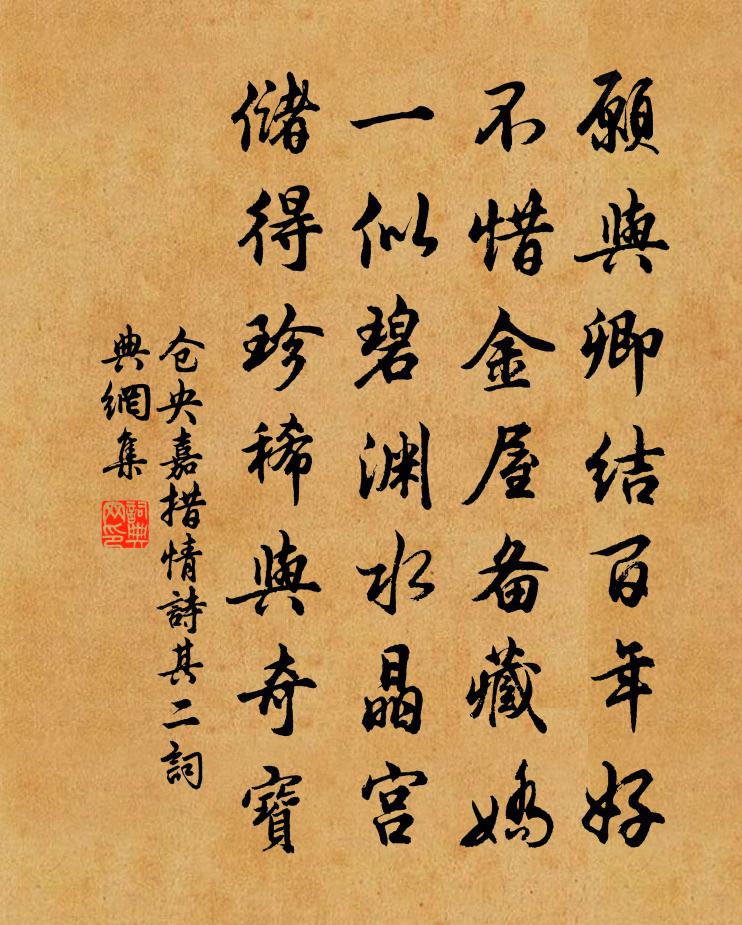 願與卿結百年好
不惜金屋备藏嬌
一似碧渊水晶宫
儲得珍稀與奇寶
仓央嘉措情詩其二詞
典網集
詞典
网印